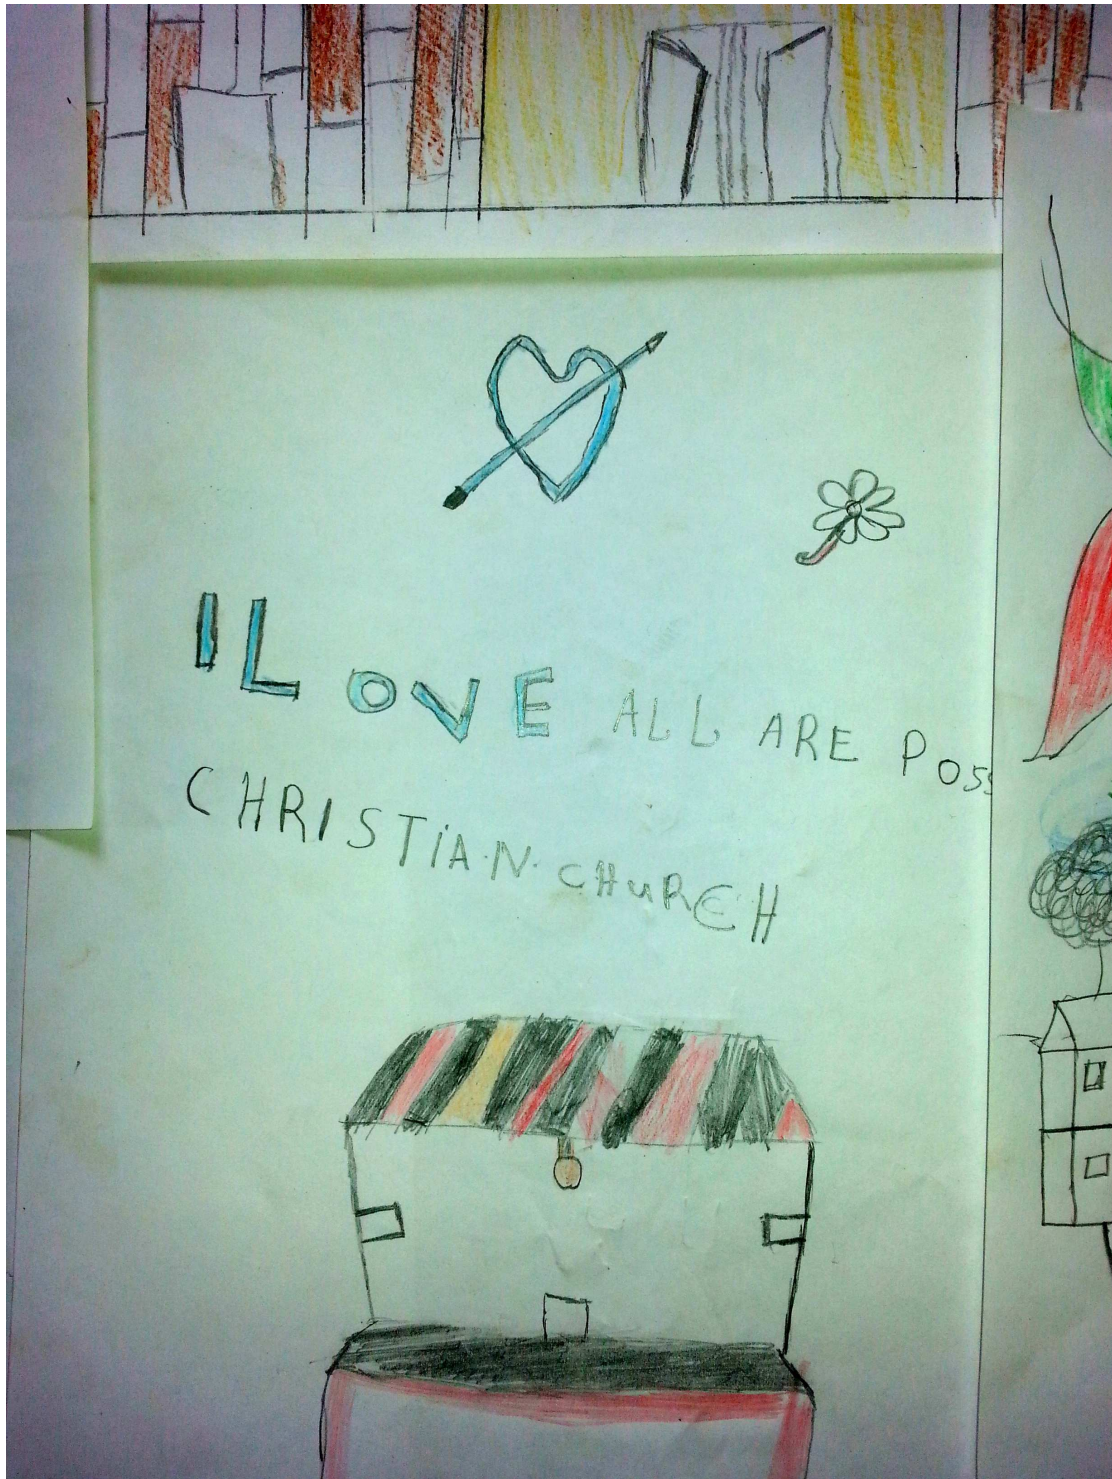 I LOVE ALL ARE POSS
CHRISTIAN CHURCH